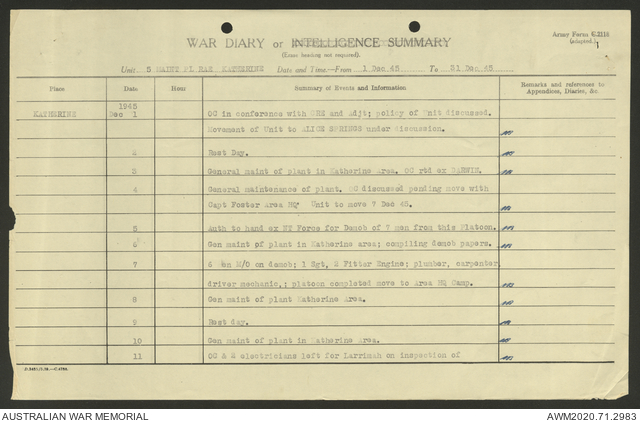 Army Form C.2118
(adapted.)
WAR DIARY or INTELLIGENCE SUMMARY
(Erase heading not required).
Unit 5 MAINT PL RAE KATHERINE Date and Time—From 1 Dec 45 To 31 Dec 45
Place Date Hour Summary of Events and Information Remarks and references to Appendices, Diaries, &c.
1945
KATHERINE Dec 1 OC in conference with CRE and Adjt; policy of Unit discussed.
Movement of Unit to ALICE SPRINGS under discussion.
2 Rest Day.
3 General maint of plant in Katherine Area. OC rtd ex DARWIN.
4 General maintenance of plant. OC discussed pending move with
Capt Foster Area HQ Unit to move 7 Dec 45.
5 Auth to hand ex NT Force for Demob of 7 men from this Platoon.
6 Gen maint of plant in Katherine area; compiling demob papers.
7 6 men M/O on demob; 1 Sgt, 2 Fitter Engine; plumber, carpenter
driver mechanic,; platoon completed move to Area HQ Camp.
8 Gen maint of plant Katherine Area.
9 Rest day.
10 Gen maint of plant in Katherine Area.
11 OC & 2 electricians left for Larrimah on inspection of
AUSTRALIAN WAR MEMORIAL AWM2020.71.2983